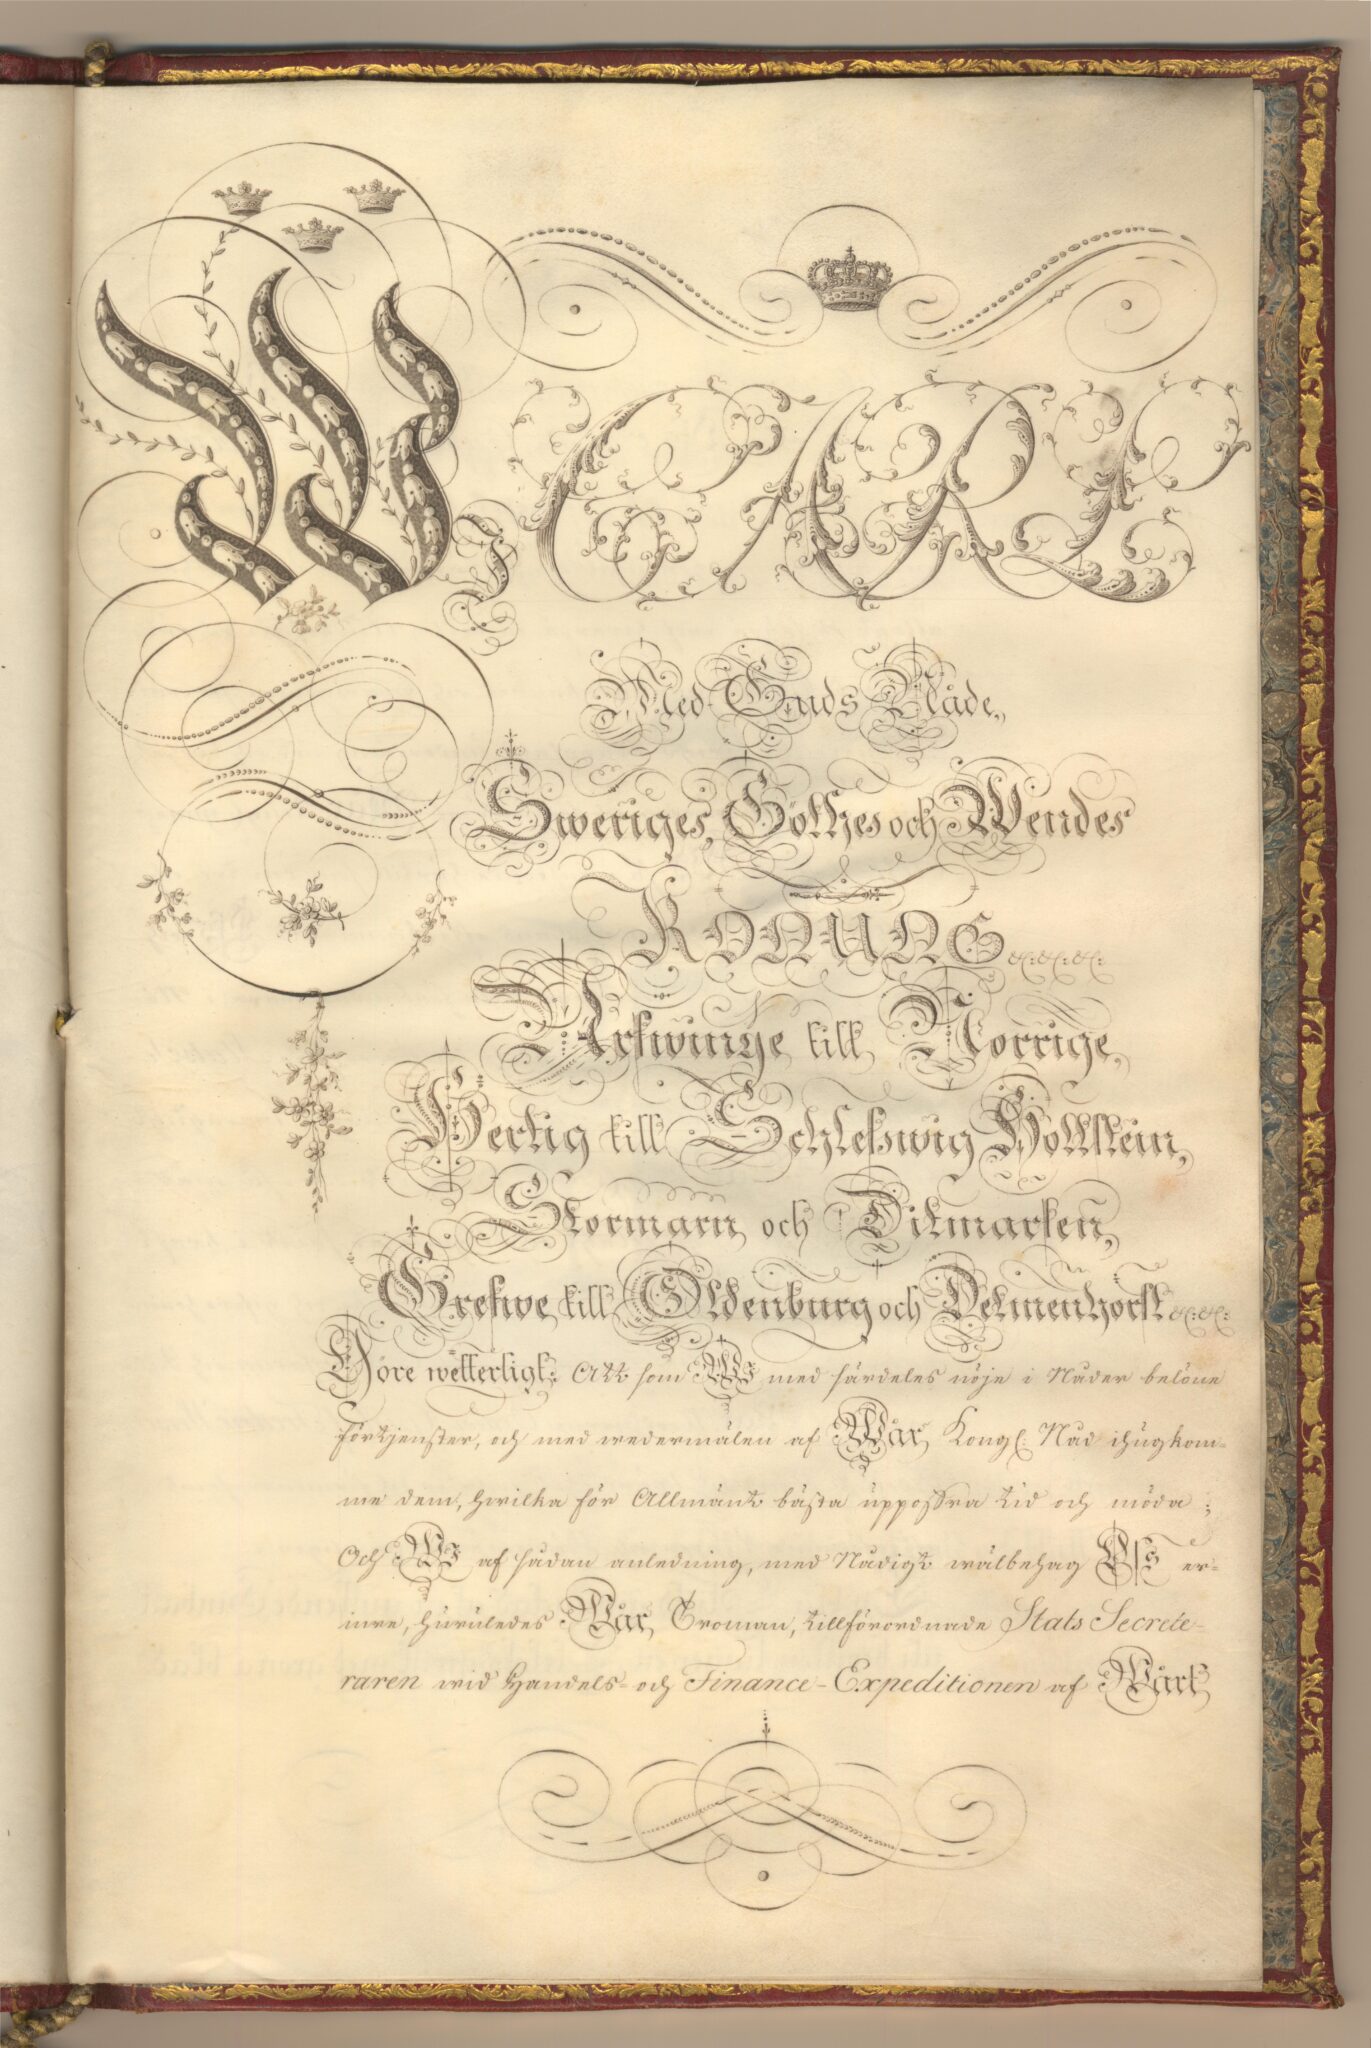 Wi CARL
Med Guds Nåde,
Sweriges, Göthes och Wendes
KONUNG &c: &c: &c:
Arfwinge till Norrige,
Hertig till Schleswig Hollstein,
Stormarn och Ditmarsen,
Grefwe till Oldenburg och Delmenhorst &c: &c:
Göre wetterligt: Att som Wi med särdeles nöje i Nåder belöne
förtjenster, och med wedermälen af Wår Kongl: Nåd ihugkom-
me dem, hwilka för Allmänt bästa uppoffra tid och möda;
Och Wi af sådan anledning, med Nådigt wälbehag Oss er-
inre, huruledes Wår Troman, tillförordnade Stats Secrete-
raren wid Handels- och Finance-Expeditionen af Wårt